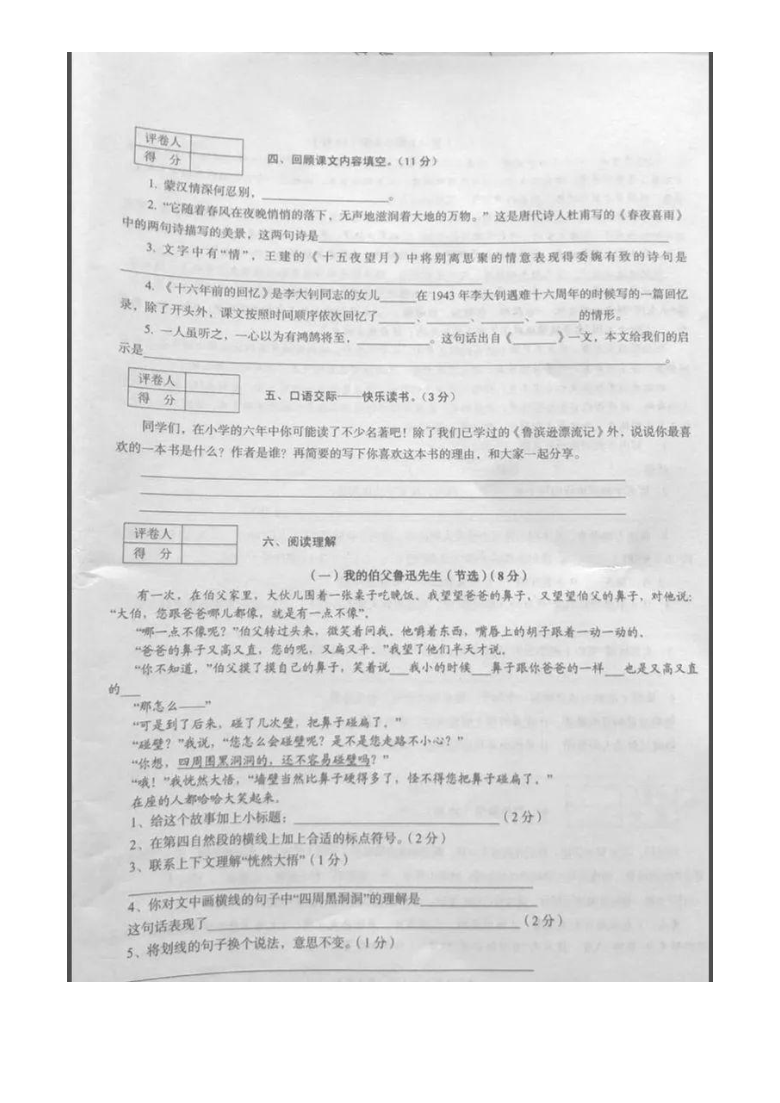 评卷人
得 分
四、回顾课文内容填空。(11分)
1. 蒙汉情深何忍别，____________。
2. "它随着春风在夜晚悄悄的落下，无声地滋润着大地的万物。"这是唐代诗人杜甫写的《春夜喜雨》
中的两句诗描写的美景，这两句诗是____________
3. 文字中有“情”，王建的《十五夜望月》中将别离思聚的情意表现得委婉有致的诗句是
____________
4. 《十六年前的回忆》是李大钊同志的女儿______在1943年李大钊遇难十六周年的时候写的一篇回忆
录，除了开头外，课文按照时间顺序依次回忆了______、______、______、______的情形。
5. 一人虽听之，一心以为有鸿鹄将至，____________。这句话出自《______》一文，本文给我们的启
示是____________。
评卷人
得 分
五、口语交际——快乐读书。(3分)
同学们，在小学的六年中你可能读了不少名著吧！除了我们已学过的《鲁滨逊漂流记》外，说说你最喜
欢的一本书是什么？作者是谁？再简要的写下你喜欢这本书的理由，和大家一起分享。
评卷人
得 分
六、阅读理解
(一)我的伯父鲁迅先生(节选)(8分)
有一次，在伯父家里，大伙儿围着一张桌子吃晚饭。我望望爸爸的鼻子，又望望伯父的鼻子，对他说：
“大伯，您跟爸爸哪儿都像，就是有一点不像”。
“哪一点不像呢？”伯父转过头来，微笑着问我。他嚼着东西，嘴唇上的胡子跟着一动一动的。
“爸爸的鼻子又高又直，您的呢，又扁又平。”我望了他们半天才说。
“你不知道，”伯父摸了摸自己的鼻子，笑着说___我小的时候___鼻子跟你爸爸的一样___也是又高又直
的___
“那怎么——”
“可是到了后来，碰了几次壁，把鼻子碰扁了。”
“碰壁？”我说，“您怎么会碰壁呢？是不是您走路不小心？”
“你想，四周围黑洞洞的，还不容易碰壁吗？”
“哦！”我恍然大悟，“墙壁当然比鼻子硬得多了，怪不得您把鼻子碰扁了。”
在座的人都哈哈大笑起来。
1、给这个故事加上小标题：____________(2分)
2、在第四自然段的横线上加上合适的标点符号。(2分)
3、联系上下文理解“恍然大悟”(1分)
____________
4、你对文中画横线的句子中“四周黑洞洞”的理解是____________
这句话表现了____________(2分)
5、将划线的句子换个说法，意思不变。(1分)
____________